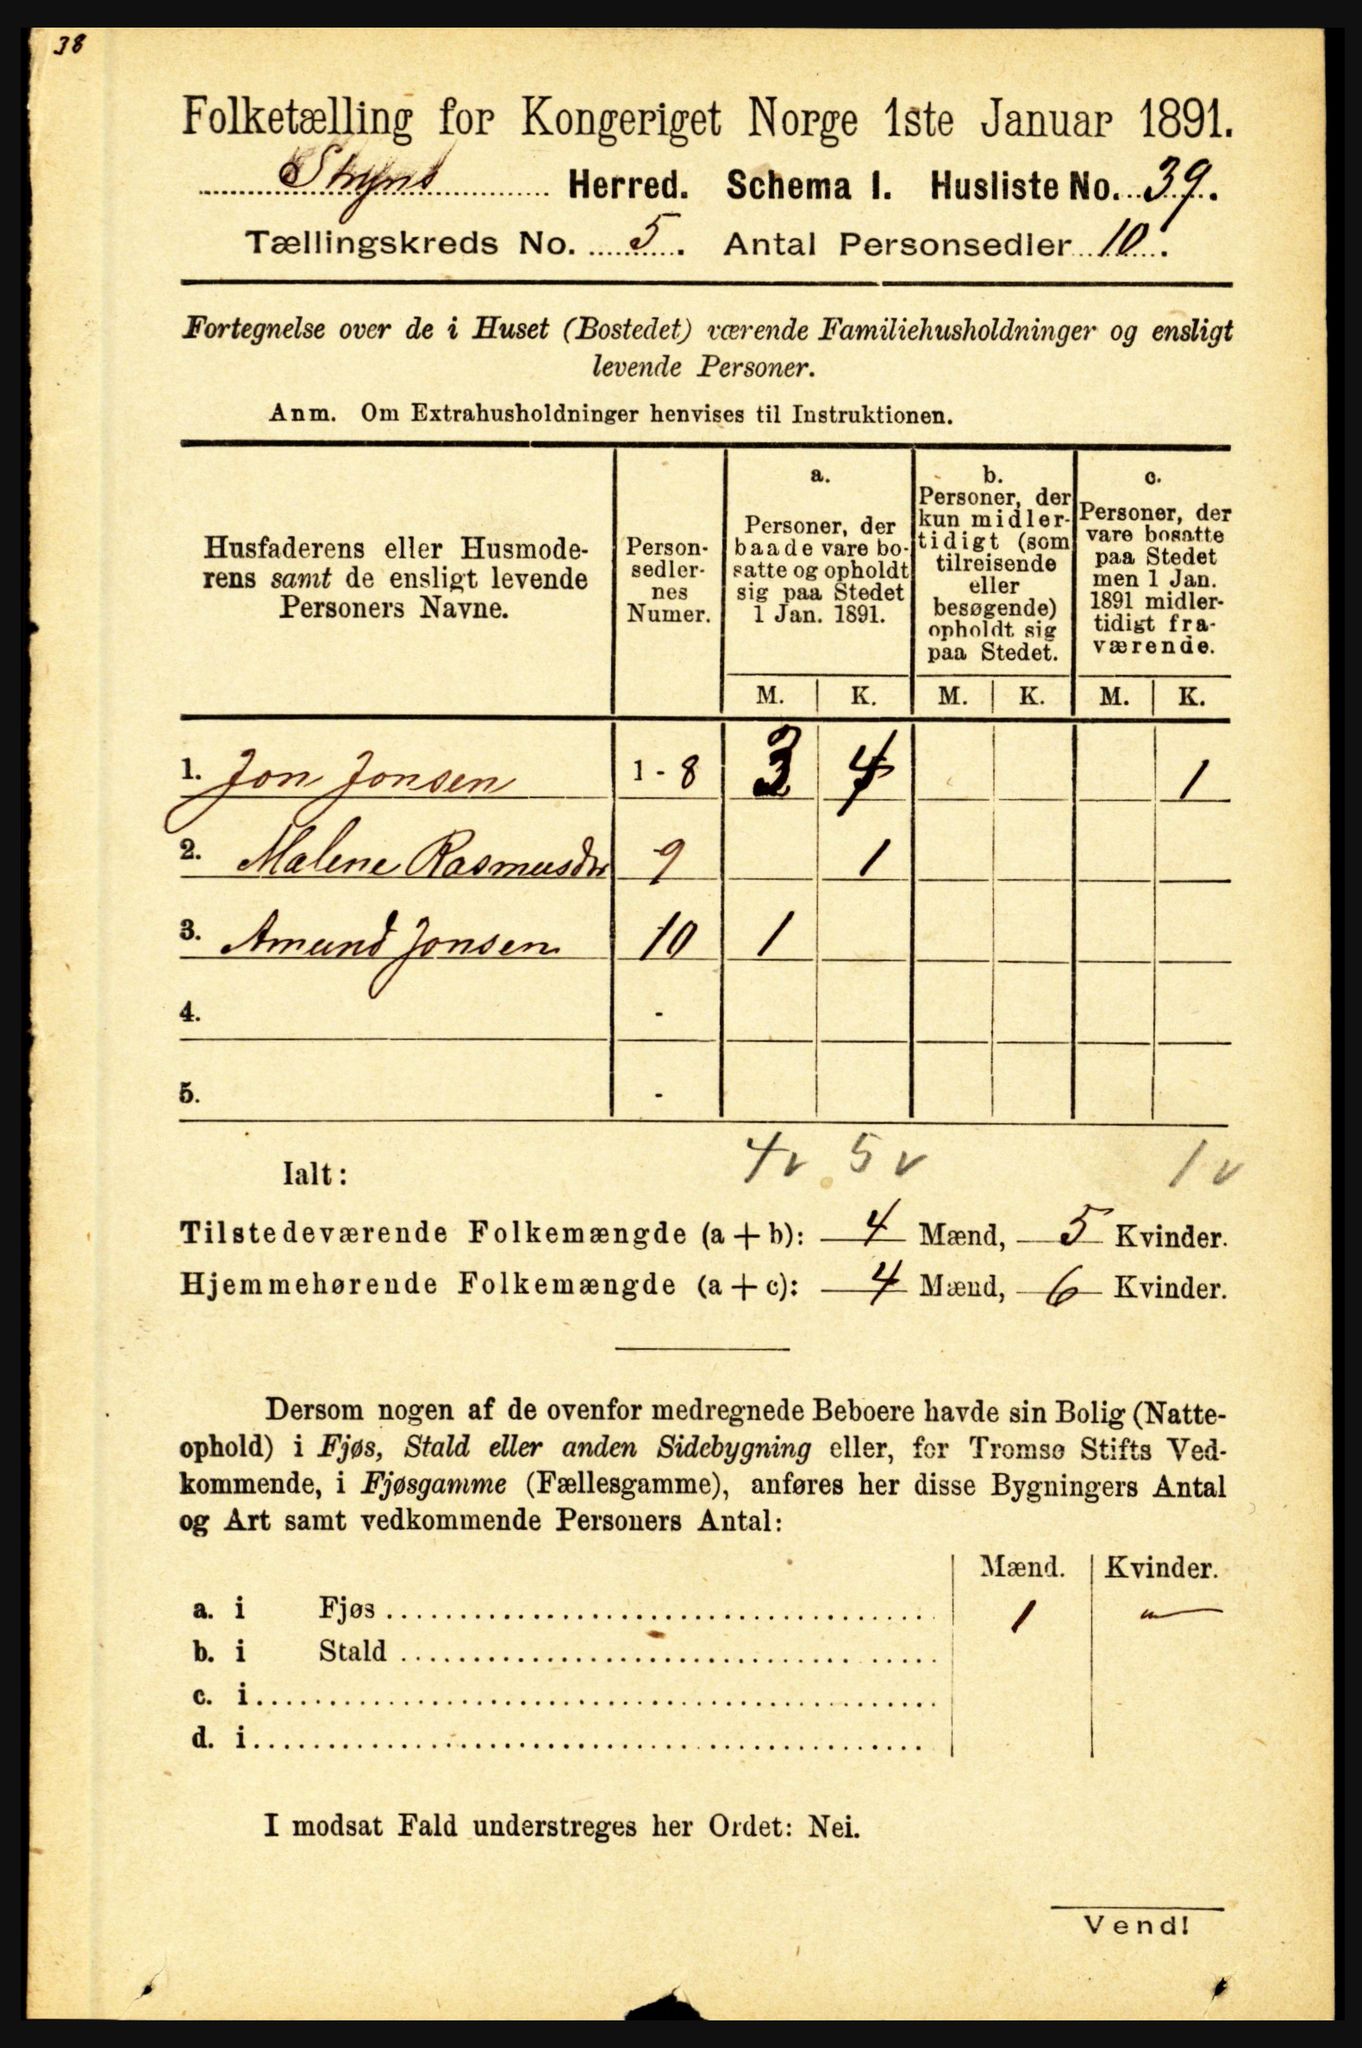 38
Folketælling for Kongeriget Norge 1ste Januar 1891.
Stryns Herred. Schema I. Husliste No. 39.
Tællingskreds No. 5. Antal Personsedler 10.
Fortegnelse over de i Huset (Bostedet) værende Familiehusholdninger og ensligt
levende Personer.
Anm. Om Extrahusholdninger henvises til Instruktionen.
Husfaderens eller Husmode-
rens samt de ensligt levende
Personers Navne.
Person-
sedler-
nes
Numer.
a.
Personer, der
baade vare bo-
satte og opholdt
sig paa Stedet
1 Jan. 1891.
b.
Personer, der
kun midler-
tidigt (som
tilreisende
eller
besøgende)
opholdt sig
paa Stedet.
c.
Personer, der
vare bosatte
paa Stedet
men 1 Jan.
1891 midler-
tidigt fra-
værende.
M. K. M. K. M. K.
1. Jon Jonsen 1 - 8 3 4 1
2. Malene Rasmusdtr 9 1
3. Amund Jonsen 10 1
4. -
5. -
Ialt: 4 v 5 v 1 v
Tilstedeværende Folkemængde (a + b): 4 Mænd, 5 Kvinder.
Hjemmehørende Folkemængde (a + c): 4 Mænd, 6 Kvinder.
Dersom nogen af de ovenfor medregnede Beboere havde sin Bolig (Natte-
ophold) i Fjøs, Stald eller anden Sidebygning eller, for Tromsø Stifts Ved-
kommende, i Fjøsgamme (Fællesgamme), anføres her disse Bygningers Antal
og Art samt vedkommende Personers Antal:
Mænd. Kvinder.
a. i Fjøs 1 —
b. i Stald
c. i
d. i
I modsat Fald understreges her Ordet: Nei.
Vend!